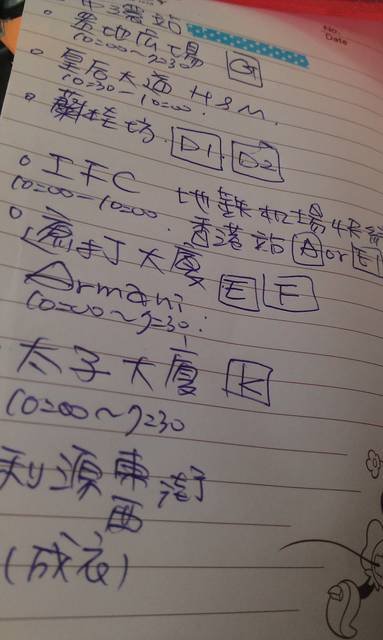 No.
Date
中環站
置地広場 G
10=00~7=30
皇后大道 H&M.
10=30-10=00.
蘭桂坊. D1. D2
IFC 地鉄机場快線
10=00-10=00. 香港站 A or E1
遮打大廈 E F
Armani
10=00~7=30.
太子大廈 K
10=00~7=30
利源東街
西
(成衣)